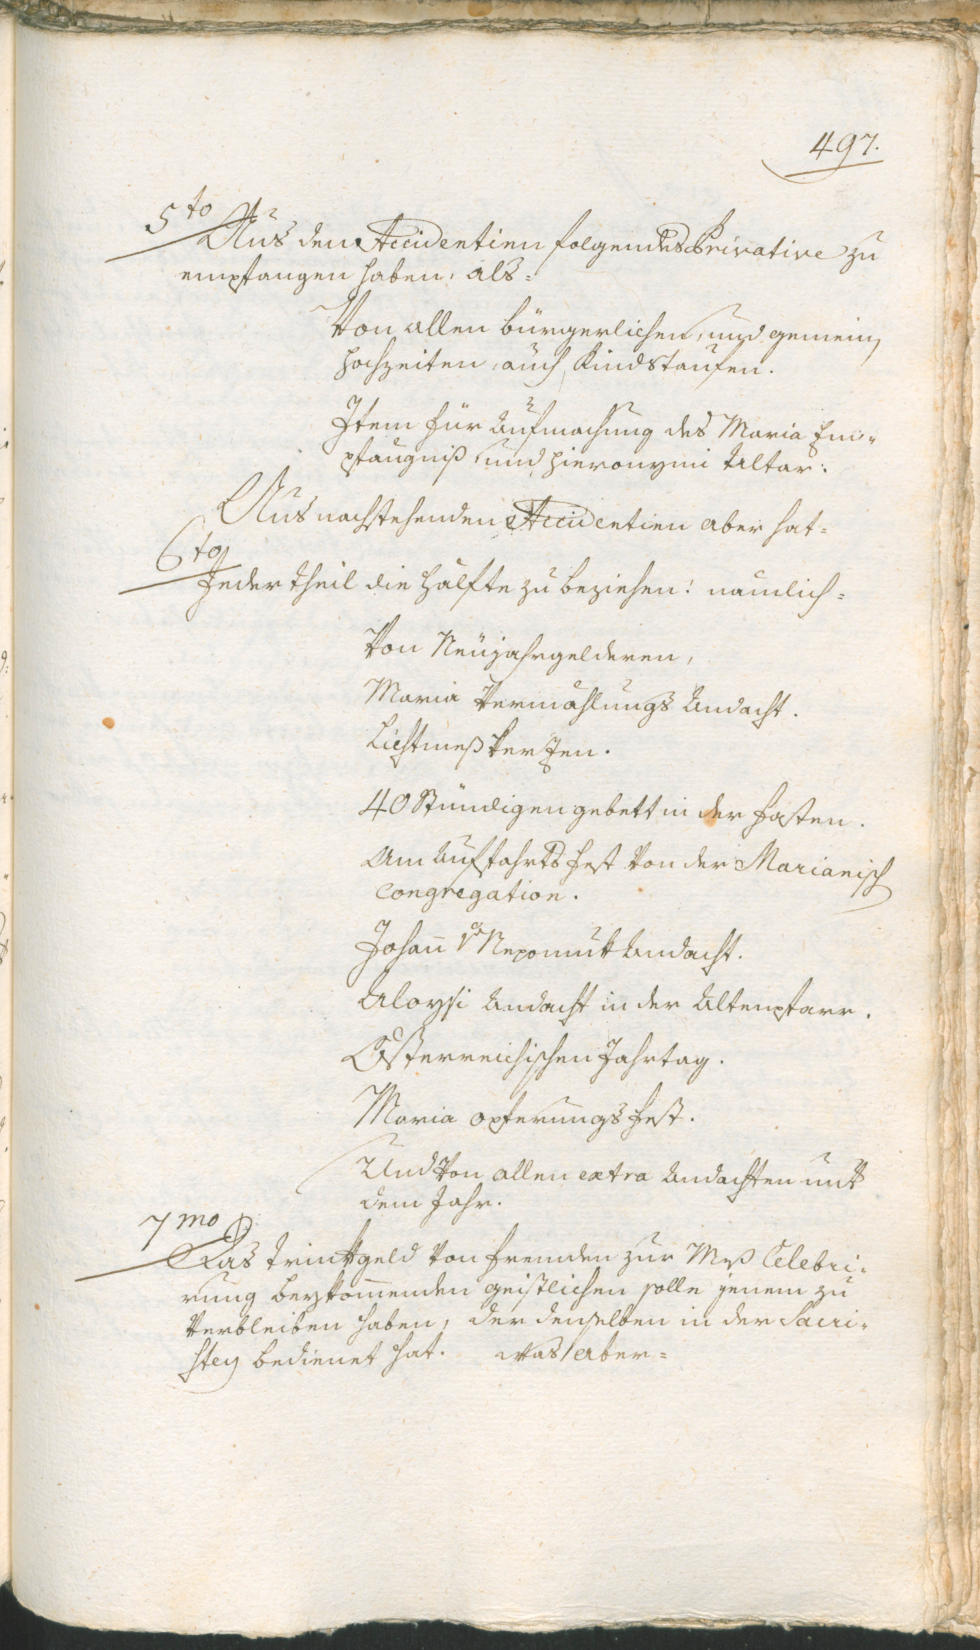 497.
5to Aus den Accidentien folgendes Privative zu
empfangen haben, als=
Von allen bürgerlichen, und gemein,
Hochzeiten, auch Kindstaufen.
Item für Aufmachung des Maria Em=
pfängniß und Hieronymi Altar:
Aus nachstehenden Accidentien aber hat=
6to
Jeder theil die Hälfte zu beziehen: nämlich=
Von Neüjahrgelderen,
Maria Vermählungs Andacht.
Lichtmeß kerzen.
40 Stündigen gebett in der fasten.
Am Auffahrts fest von der Marianisch
Congregation.
Johann v. Nepomuk Andacht.
Aloysi Andacht in der Altenpfarr.
Österreichischen Jahrtag.
Maria opferungs fest.
Und von allen extra Andachten unter
dem Jahr.
7mo
Das trinkgeld von fremden zur Meß Celebri=
rung beykommenden geistlichen solle jenem zu
verbleiben haben, der denselben in der Sacri=
stey bedienet hat. was aber=